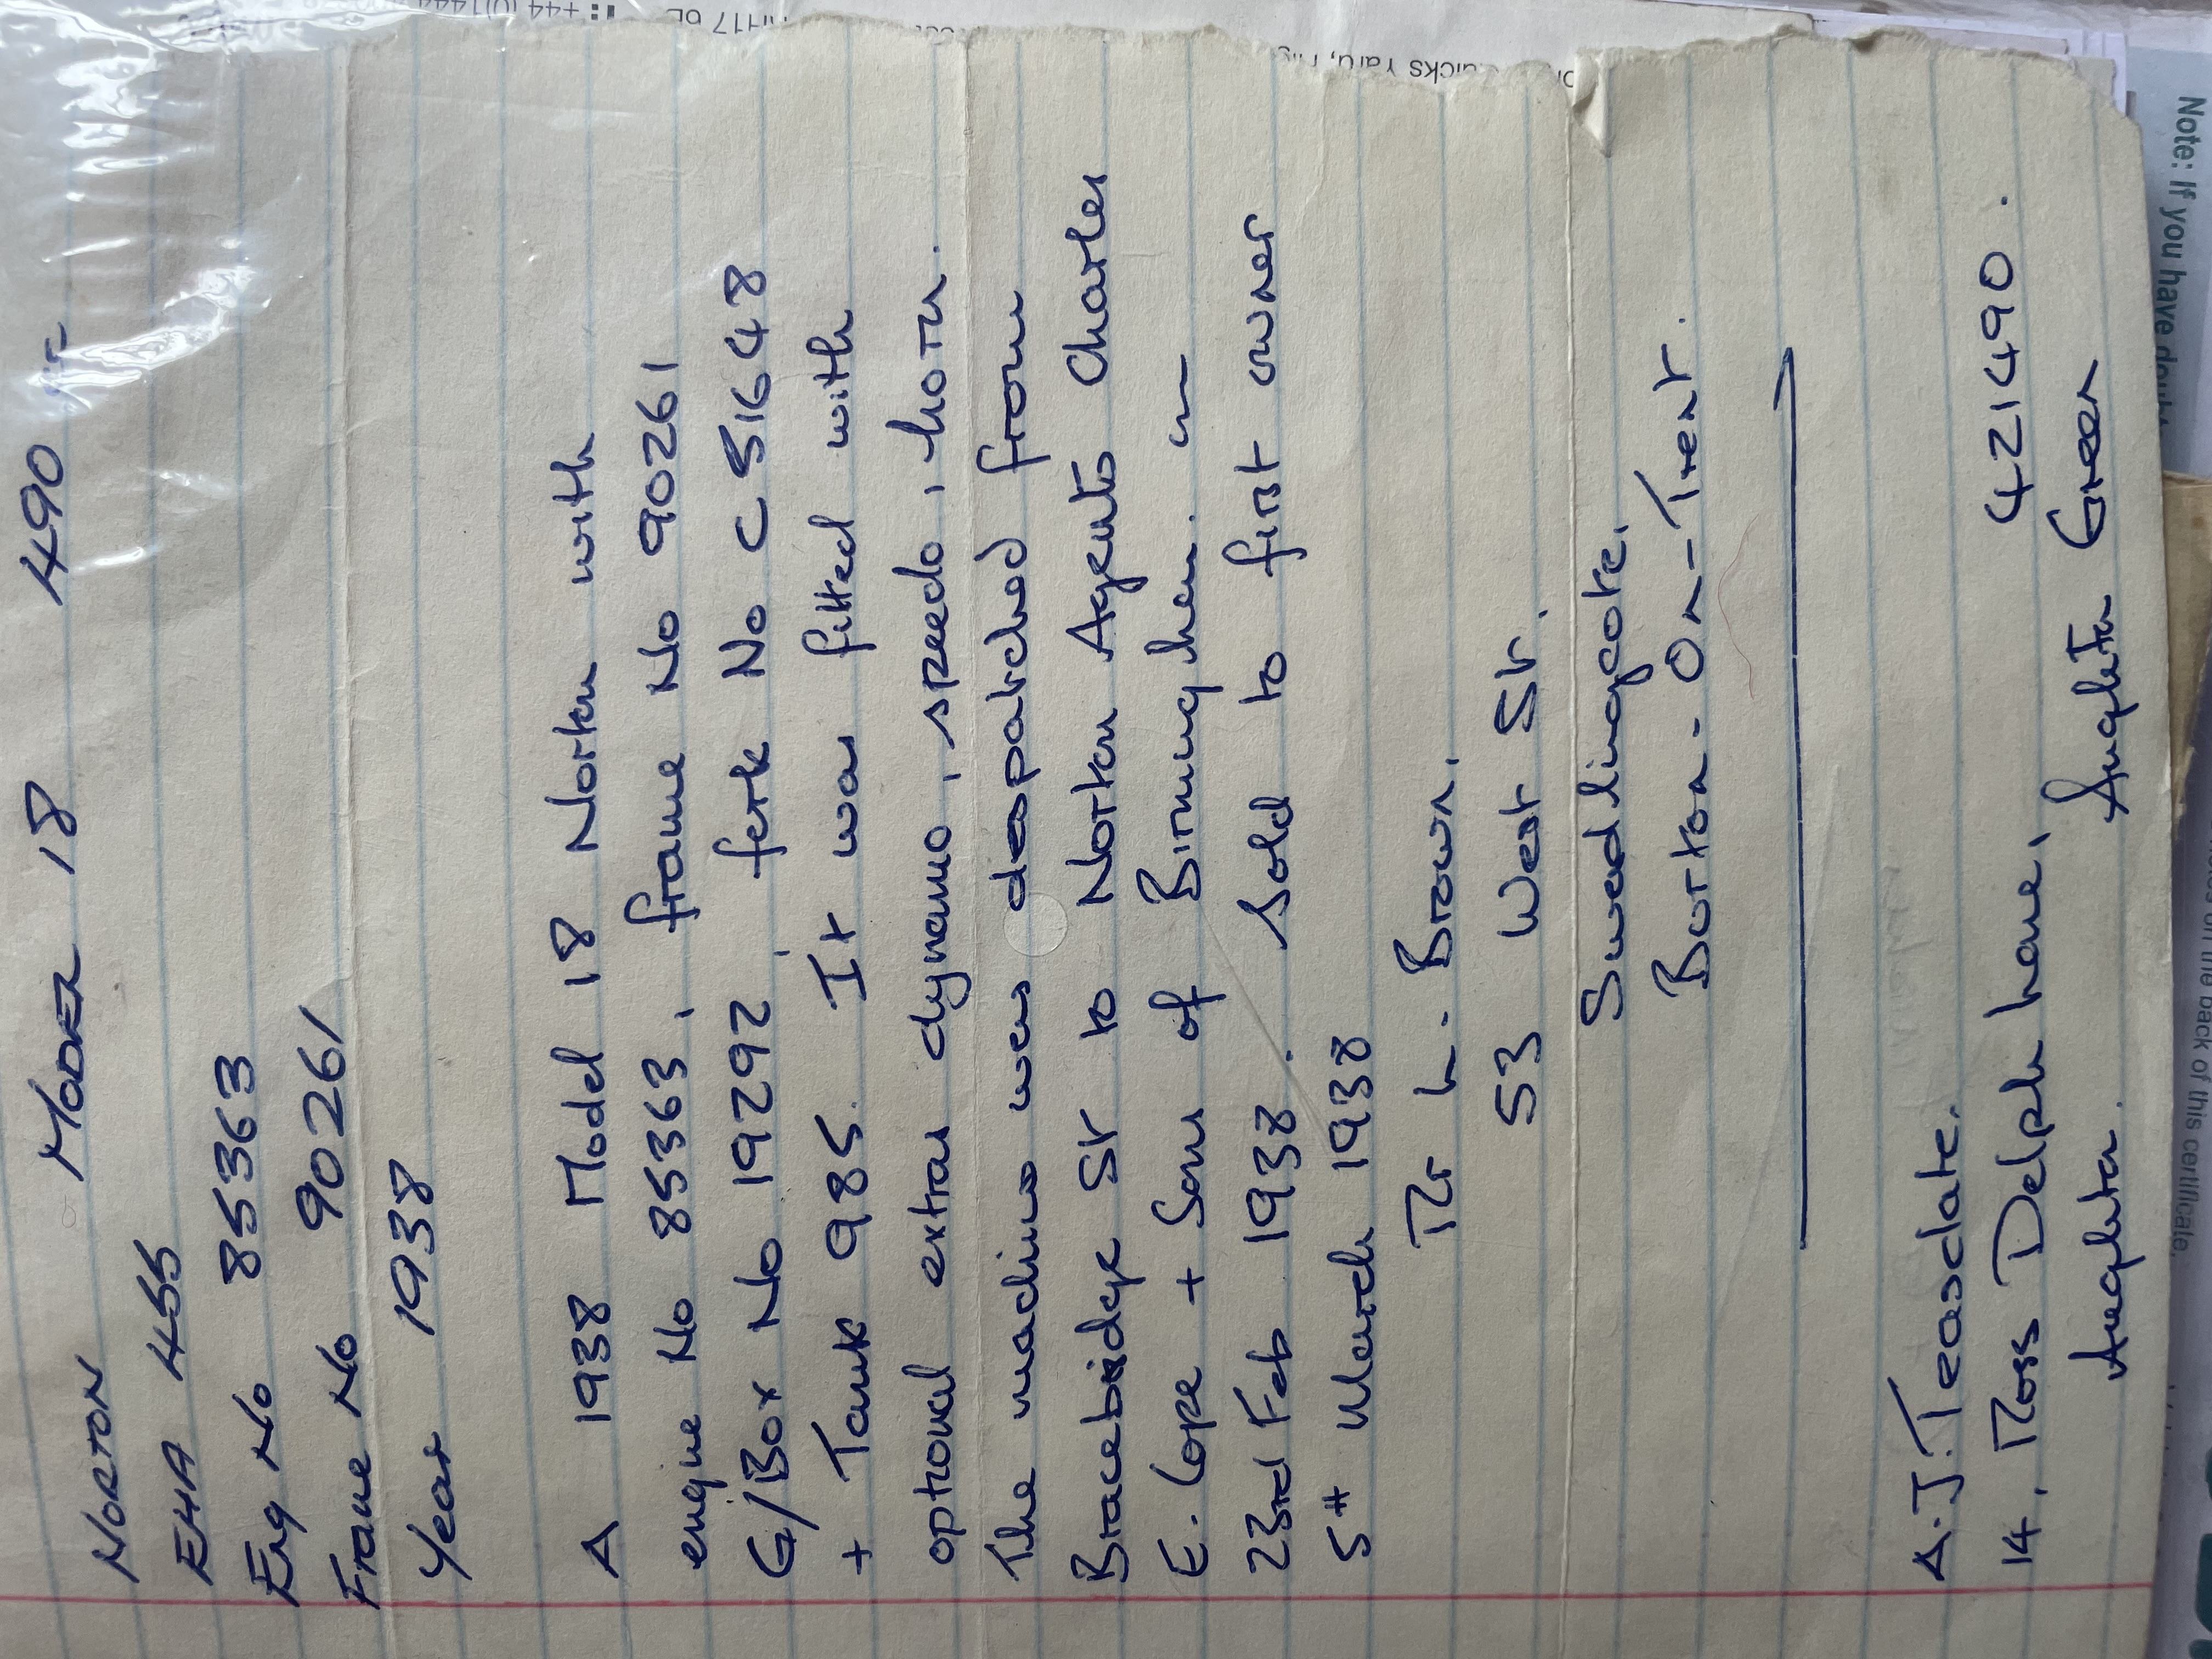 NORTON MODEL 18 490 cc
EHA 455
Eng No 85363
Frame No 90261
Year 1938
A 1938 Model 18 Norton with
engine No 85363, frame No 90261
G/Box No 19292, fork No C 51648
+ Tank 985. It was fitted with
optional extras dynamo, speedo, horn.
The machine was despatched from
Bracebridge St to Norton Agents Charles
E. Cope + Sons of Birmingham. on
23rd Feb 1938. Sold to first owner
5th March 1938
Mr L. Brown.
53 West St.
Swadlincote.
Burton-On-Trent.
A.J. Teasdale.
14, Moss Delph Lane, 421490.
Aughton. Aughton Green
Note: If you have
on the back of this certificate.
icks Yard,
RH17 6
+44 (0)1444